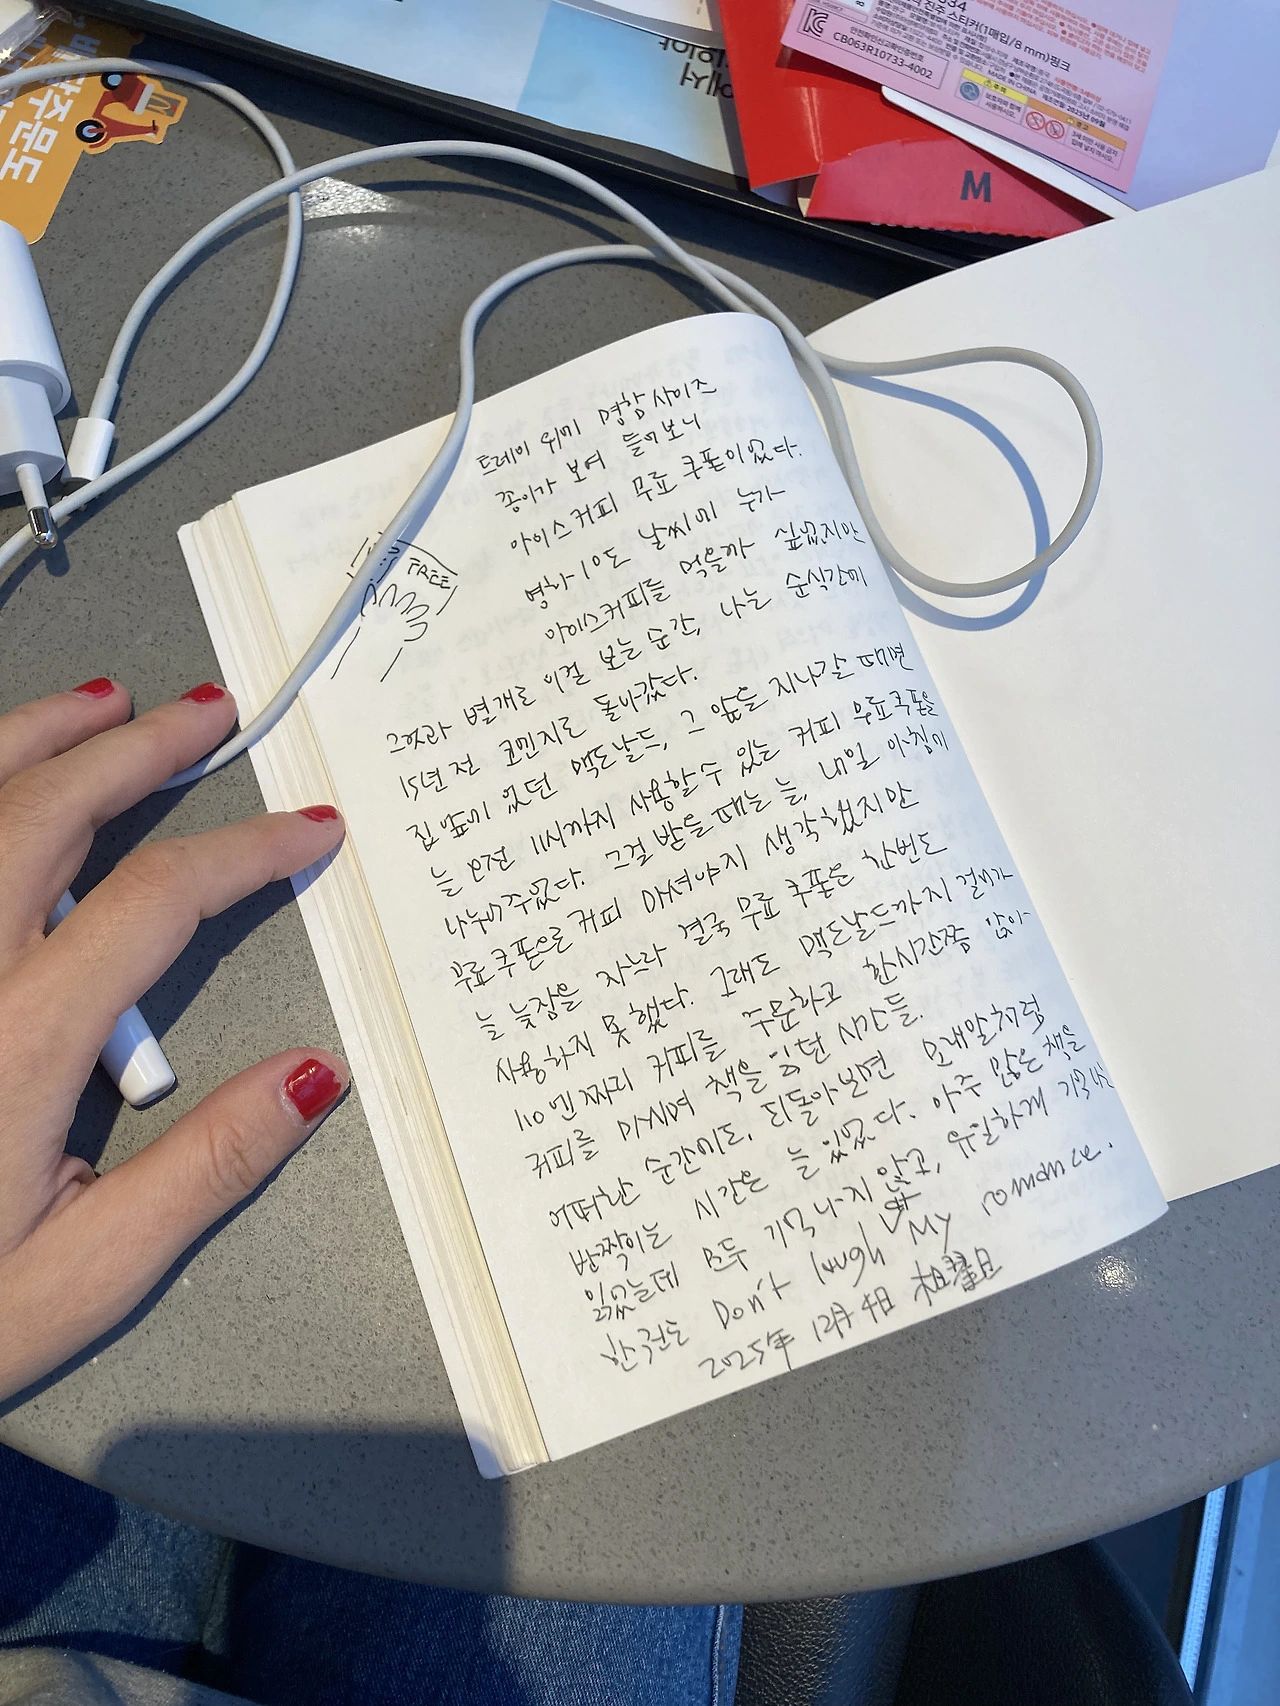 334
진주 스티커(1매입/8 mm)핑크
CB063R10733-4002
MADE IN CHINA
2023년 09월
M
배달주문도
FREE
트레이 위에 명함 사이즈
종이가 보여 들어보니
아이스커피 무료 쿠폰이었다.
영하 10도 날씨에 누가
아이스커피를 먹을까 싶었지만
그것과 별개로 이걸 보는 순간, 나는 순식간에
15년 전 코엔지로 돌아갔다.
집 앞에 있던 맥도날드, 그 앞을 지나갈 때면
늘 오전 11시까지 사용할 수 있는 커피 무료쿠폰을
나누어주었다. 그걸 받을 때는 늘, 내일 아침에
무료쿠폰으로 커피 마셔야지 생각했지만
늘 늦잠을 자느라 결국 무료 쿠폰은 한번도
사용하지 못했다. 그래도 맥도날드까지 걸어가
110엔짜리 커피를 주문하고 한시간쯤 앉아
커피를 마시며 책을 읽던 시간들.
어떠한 순간에도, 뒤돌아보면 모래알처럼
반짝이는 시간은 늘 있었다. 아주 많은 책을
읽었는데 모두 기억나지 않고, 유일하게 기억나는
한 권은 Don't laugh at My romance.
2025年 12月 4日